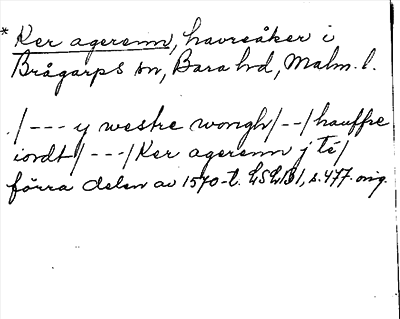 * Ker agerenn, havreåker i
Brågarps sn, Bara hd, Malm. l.
./--- y westre wongh/--/hauffre
iordt/---/Ker agerenn j té/
förra delen av 1570-t. LSLB1, s. 477. orig.